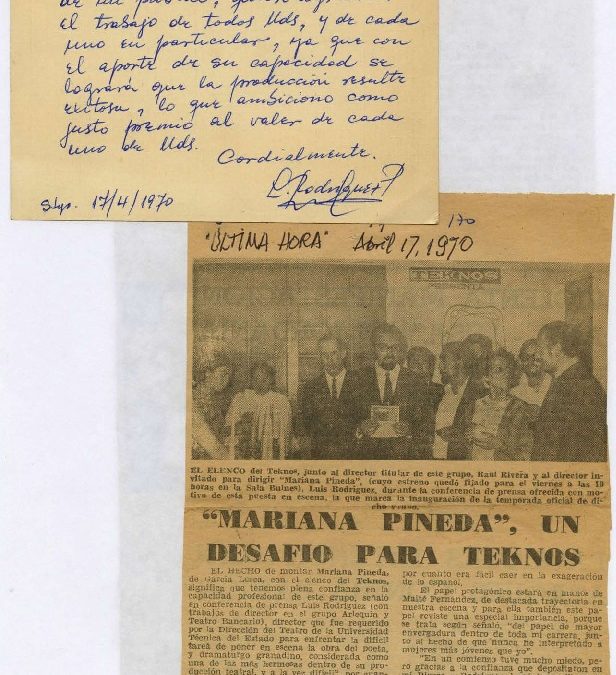 el trabajo de todos Uds, y de cada
uno en particular, ya que con
el aporte de su capacidad se
logrará que la producción resulte
exitosa, lo que ambiciono como
justo premio al valer de cada
uno de Uds.
Cordialmente.
L. Rodríguez P
Stgo. 17/4/1970
/70
"ULTIMA HORA" Abril 17, 1970
TEKNOS
EL ELENCO del Teknos, junto al director titular de este grupo, Raúl Rivera y al director in-
vitado para dirigir "Mariana Pineda", (cuyo estreno quedó fijado para el viernes a las 19
horas en la Sala Bulnes), Luis Rodríguez, durante la conferencia de prensa ofrecida con mo-
tivo de esta puesta en escena, la que marca la inauguración de la temporada oficial de di-
cho grupo.
"MARIANA PINEDA", UN
DESAFIO PARA TEKNOS
EL HECHO de montar Mariana Pineda,
de García Lorca, con el elenco del Teknos,
significa que tenemos plena confianza en la
capacidad profesional de este grupo, señaló
en conferencia de prensa Luis Rodríguez (con
trabajos de director en el grupo Arlequín y
Teatro Bancario), director que fue requerido
por la Dirección del Teatro de la Universidad
Técnica del Estado para enfrentar la difícil
tarea de poner en escena la obra del poeta,
y dramaturgo granadino, considerada como
una de las más hermosas dentro de su pro-
ducción teatral, y a la vez difícil
por cuanto era fácil caer en la exageración
de lo español.
El papel protagónico estará en manos de
Maité Fernández, de destacada trayectoria en
nuestra escena y para ella también este pa-
pel reviste una especial importancia, porque
se trata según señaló, "del papel de mayor
envergadura dentro de toda mi carrera, jun-
to al hecho de que nunca he interpretado a
mujeres más jóvenes que yo".
"En un comienzo tuve mucho miedo, pe-
ro gracias a la confianza que depositaron en